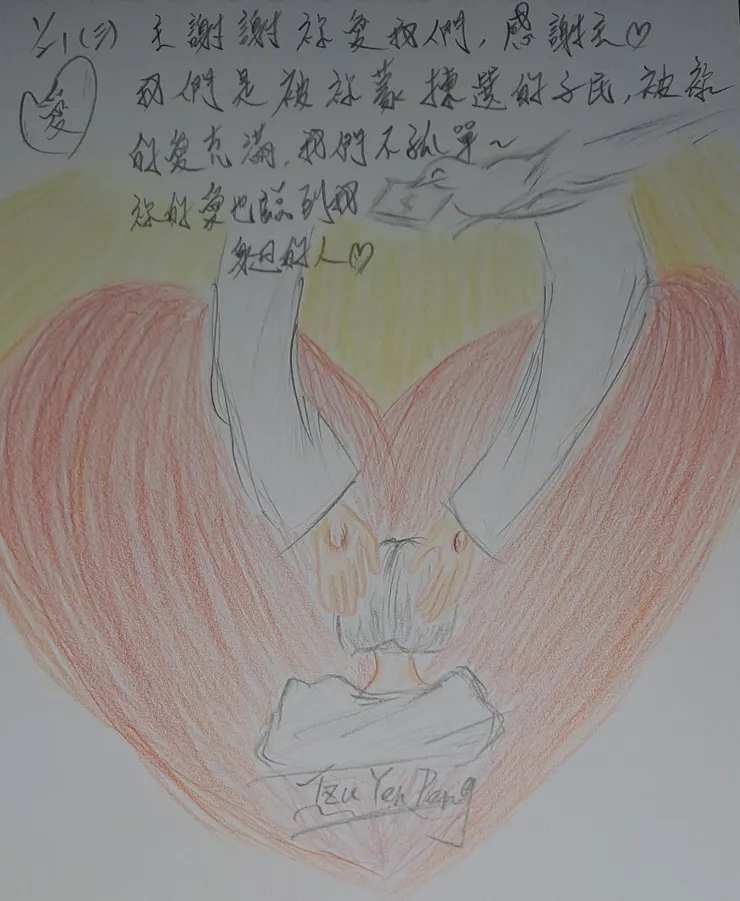 1/21(三) 主謝謝祢愛我們,感謝主♡
愛
我們是被祢蒙揀選的子民,被祢
的愛充滿,我們不孤單~
祢的愛也臨到我
身邊的人♡
Tzu Yen Peng